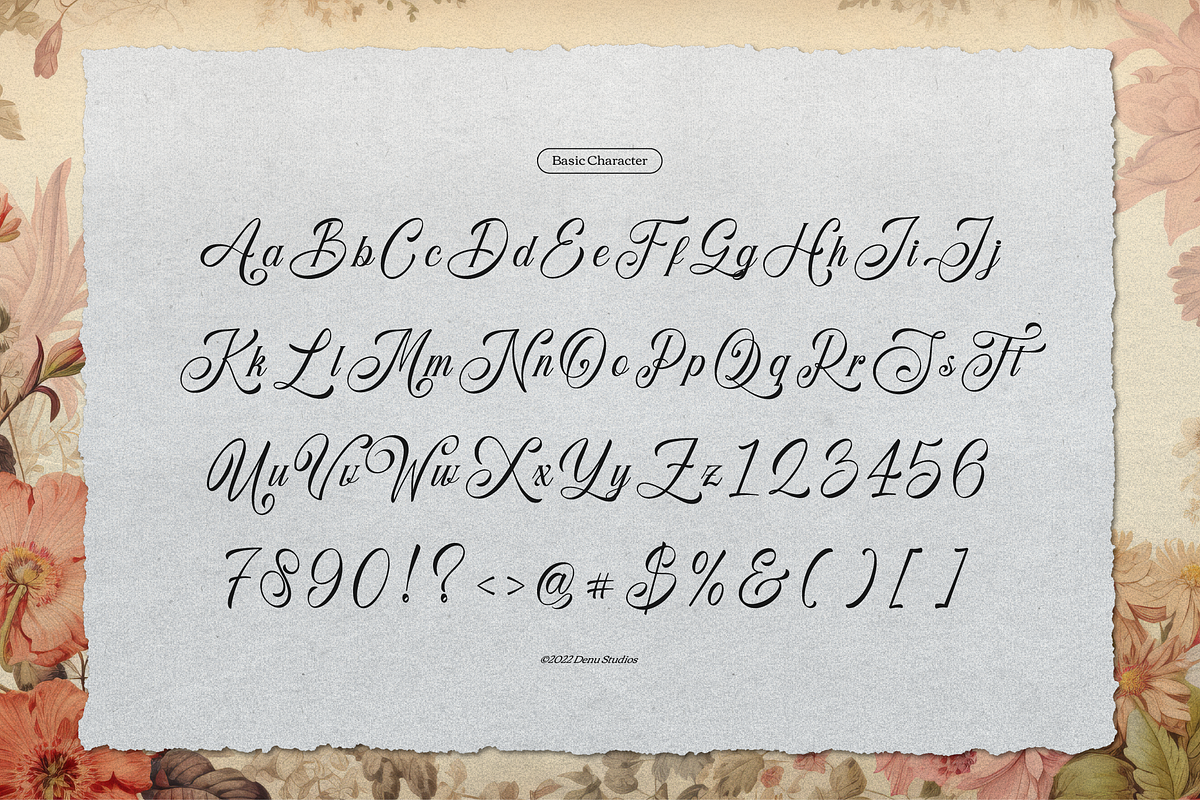 Basic Character
Aa Bb Cc Dd Ee Ff Gg Hh Ii Jj
Kk Ll Mm Nn Oo Pp Qq Rr Ss Tt
Uu Vv Ww Xx Yy Zz 1 2 3 4 5 6
7 8 9 0 ! ? < > @ # $ % & ( ) [ ]
©2022 Denu Studios